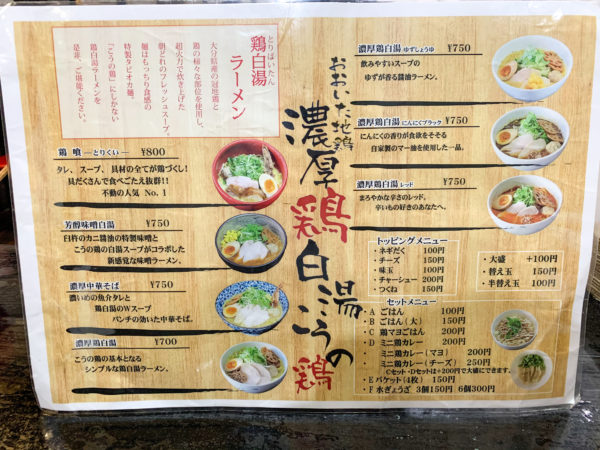 とりぱいたん
鶏白湯
ラーメン
大分県産の冠地鶏と
鶏の様々な部位を使用し、
超火力で炊き上げた
朝どれのフレッシュスープ。
麺はもっちり食感の
特製タピオカ麺。
「こうの鶏」にしかない
鶏白湯ラーメンを
是非、ご堪能ください。
おおいた地鶏
濃厚鶏白湯こうの鶏
鶏 喰 ―とりくい― ¥800
タレ、スープ、具材の全てが鶏づくし!
具だくさんで食べごたえ抜群!!
不動の人気 No. 1
芳醇味噌白湯 ¥750
臼杵のカニ醤油の特製味噌と
こうの鶏の白湯スープがコラボした
新感覚な味噌ラーメン。
濃厚中華そば ¥750
濃いめの魚介タレと
鶏白湯のWスープ
パンチの効いた中華そば。
濃厚鶏白湯 ¥700
こうの鶏の基本となる
シンプルな鶏白湯ラーメン。
濃厚鶏白湯 ゆずしょうゆ ¥750
飲みやすいスープの
ゆずが香る醤油ラーメン。
濃厚鶏白湯 にんにくブラック ¥750
にんにくの香りが食欲をそそる
自家製のマー油を使用した一品。
濃厚鶏白湯 レッド ¥750
まろやかな辛さのレッド。
辛いもの好きのあなたへ。
トッピングメニュー
・ネギだく 100円
・チーズ 150円
・味玉 100円
・チャーシュー 200円
・つくね 150円
・大盛 +100円
・替え玉 150円
・半替え玉 100円
セットメニュー
・A ごはん 100円
・B ごはん(大) 150円
・C 鶏マヨごはん 200円
・D ミニ鶏カレー 200円
・ ミニ鶏カレー(マヨ) 200円
・ ミニ鶏カレー(チーズ) 250円
◎セット・Dセットは+200円で大盛にできます。
・E バケット(4枚) 150円
・F 水ぎょうざ 3個150円 6個300円